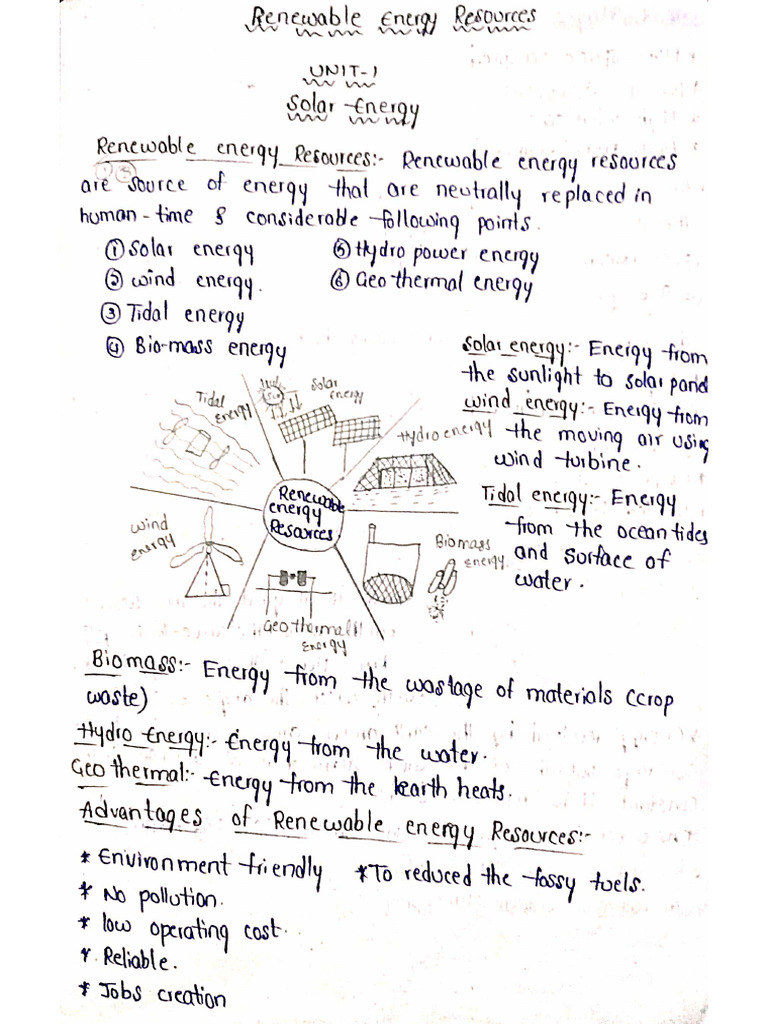 Renewable Energy Resources
UNIT-1
Solar Energy
Renewable energy Resources:- Renewable energy resources
are source of energy that are neutrally replaced in
human-time & considerable following points.
① Solar energy
② wind energy.
③ Tidal energy
④ Bio-mass energy
⑤ Hydro power energy
⑥ Geo thermal energy
Solar energy:- Energy from
the sunlight to solar panel
wind energy:- Energy from
the moving air using
wind turbine.
Tidal energy:- Energy
from the ocean tides
and surface of
water.
Tidal
energy
Solar
energy
Hydro energy
Renewable
energy
Resources.
wind
energy
Biomass
energy
Geo thermal
Energy
Biomass:- Energy from the wastage of materials (crop
waste)
Hydro Energy:- Energy from the water.
Geo thermal:- Energy from the earth heats.
Advantages of Renewable energy Resources:-
* Environment friendly * To reduced the fossy fuels.
* No pollution.
* low operating cost.
* Reliable.
* Jobs creation